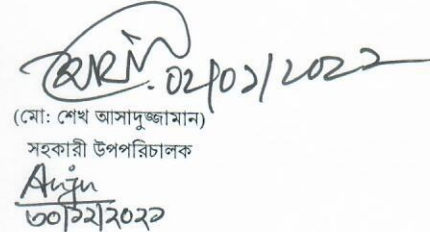 ০২/০১/২০২২
(মো: শেখ আসাদুজ্জামান)
সহকারী উপপরিচালক
Anju
৩০/১২/২০২১